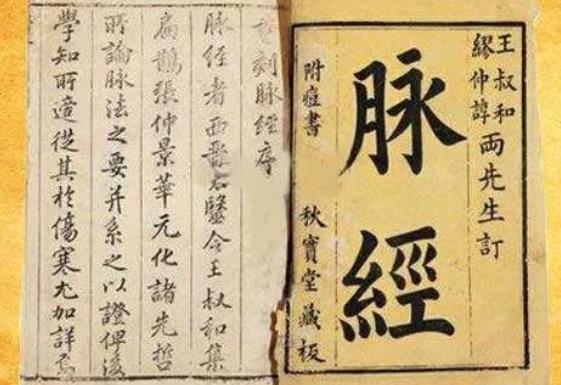 王叔和
繆仲諄
兩先生訂
脉經
附痘書
秋寶堂藏板
刻脉經序
脉經者西晋太醫令王叔和集
扁鵲張仲景華元化諸先哲
所論脉法之要并系之以證俾後
學知所適從其於傷寒尤加詳焉